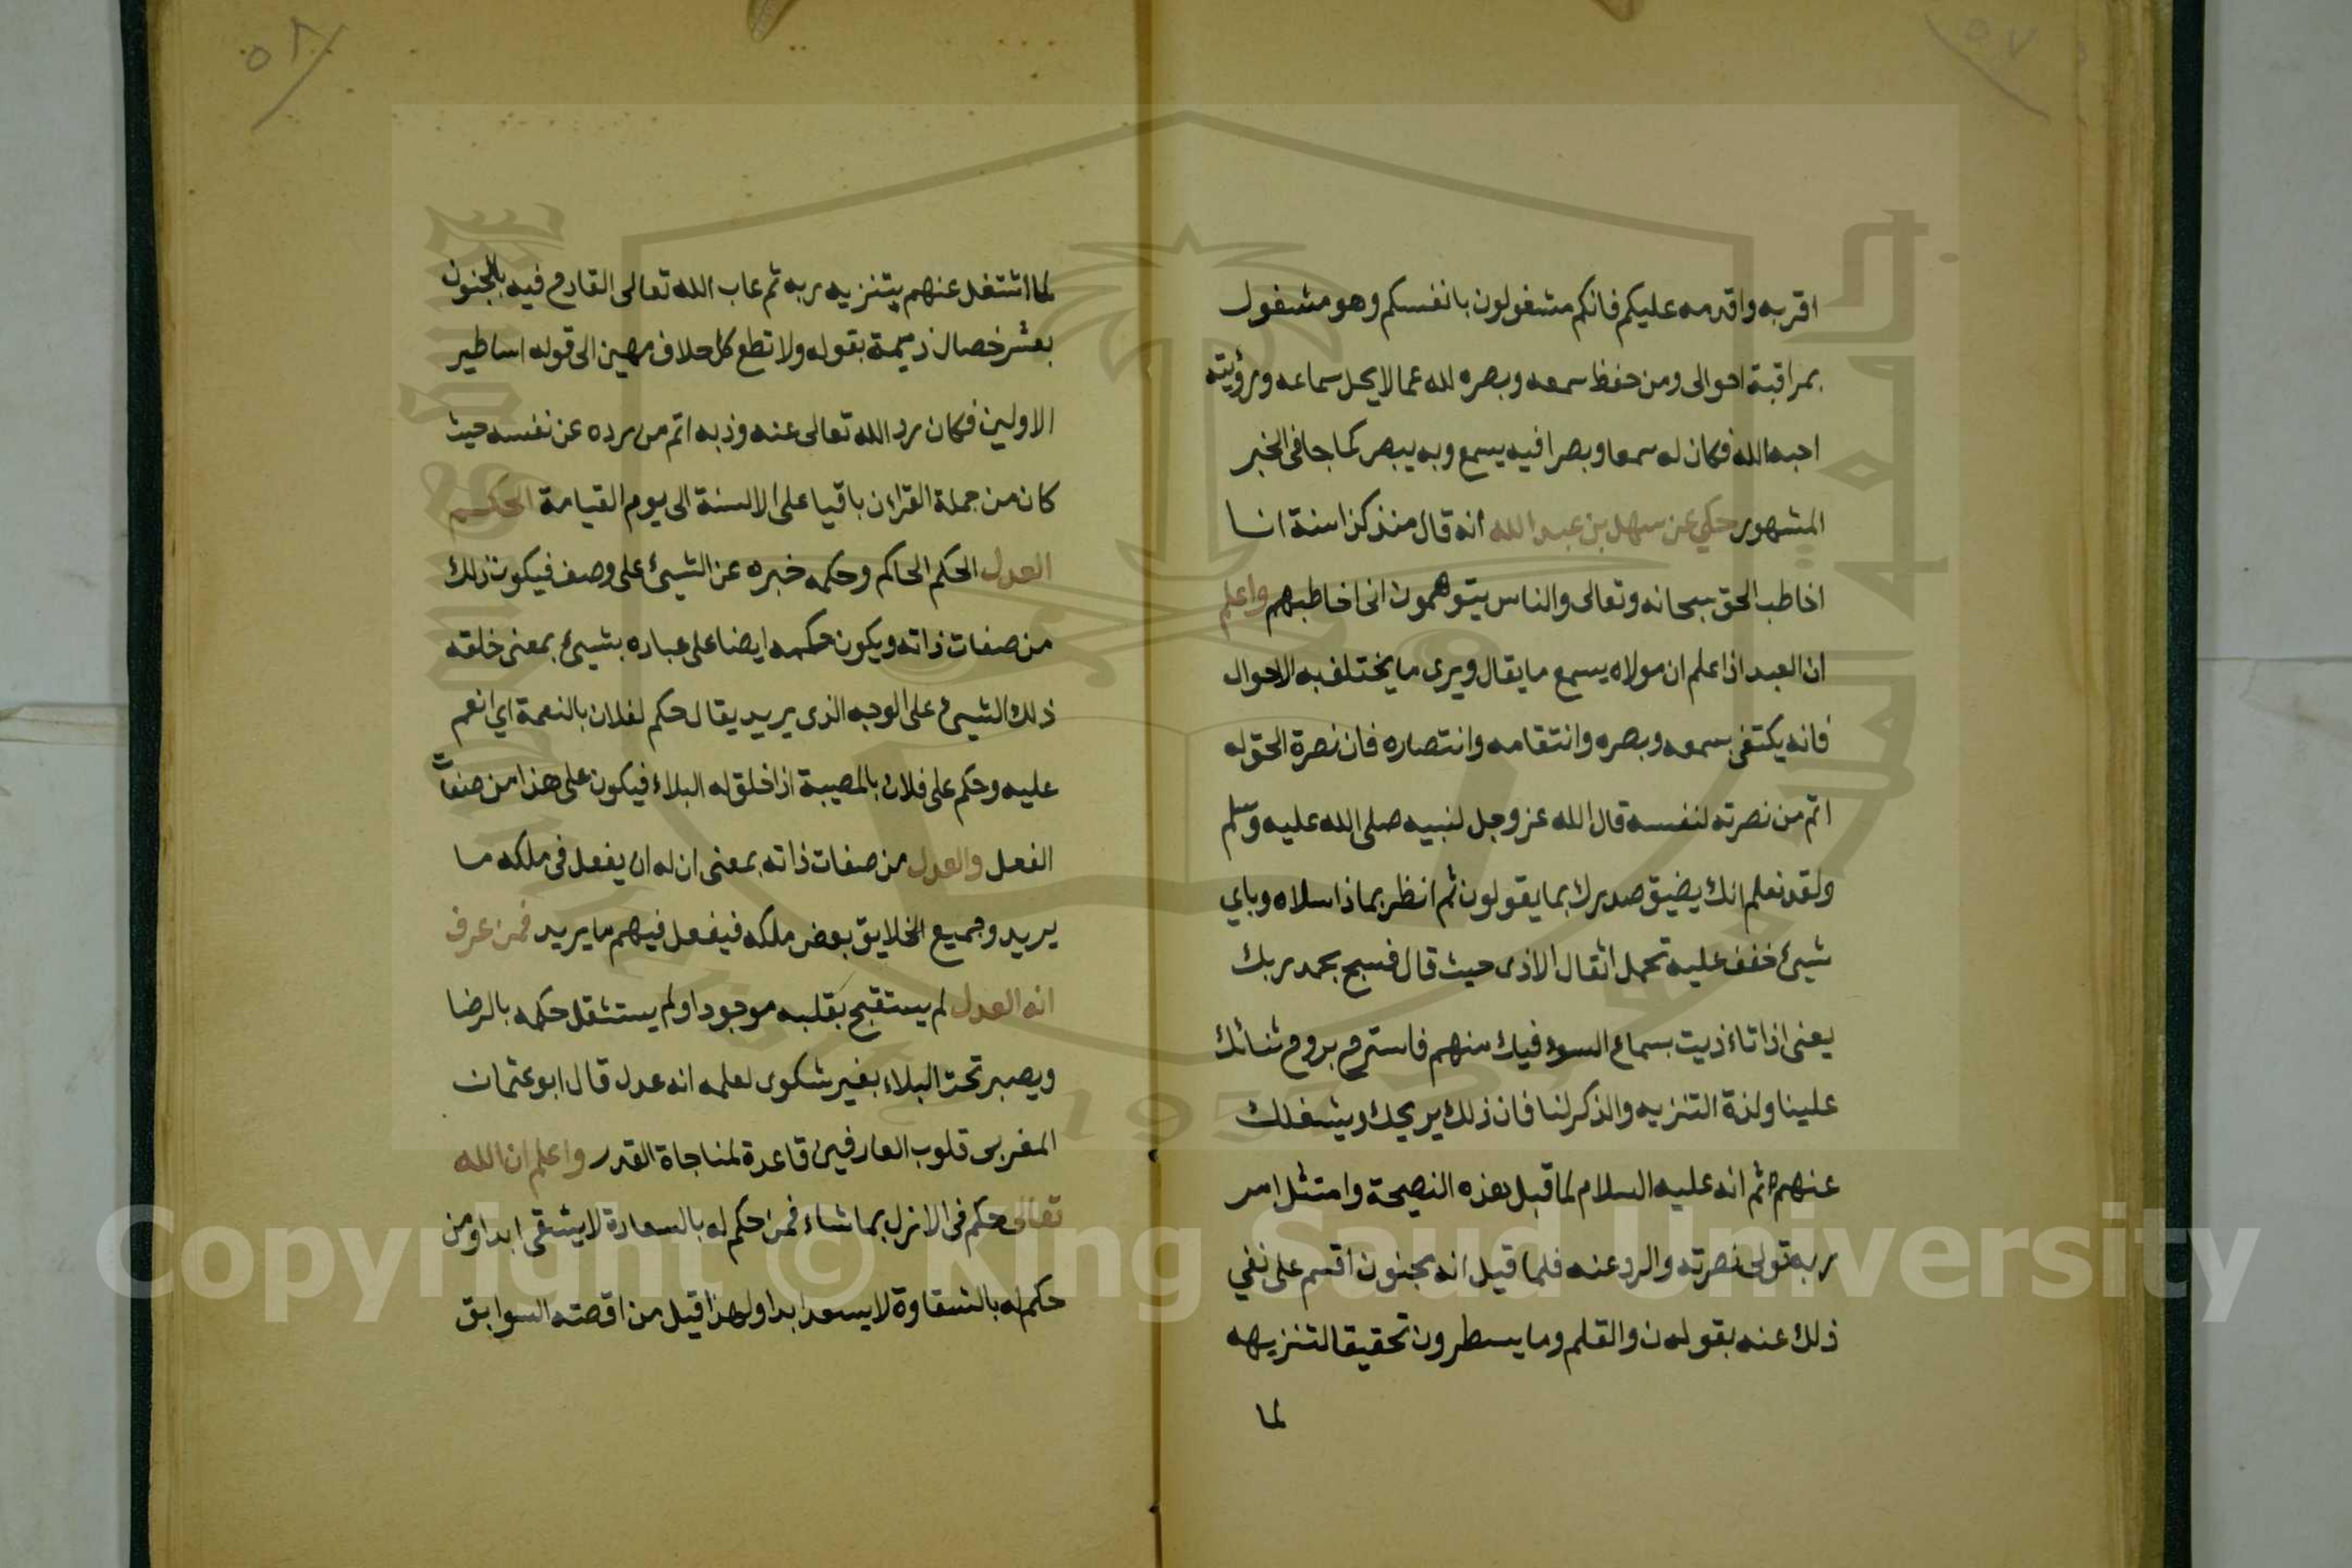 ٥٧
اقربه واقدمه عليكم فانكم مشغولون بانفسكم وهو مشغول
بمراقبة احوالى ومن حفظ سمعه وبصره لله عما لا يحل سماعه ورؤيته
احبه الله فكان له سمعا وبصرا فيه يسمع وبه يبصر كما جا فى الخبر
المشهور حكي عن سهل بن عبد الله انه قال منذ كذا سنة انا
اخاطب الحق سبحانه وتعالى والناس يتوهمون انى اخاطبهم واعلم
ان العبد اذا علم ان مولاه يسمع ما يقال ويرى ما يختلف به الاحوال
فانه يكتفى بسمعه وبصره وانتقامه وانتصاره فان نصرة الحق له
اتم من نصرته لنفسه قال الله عز وجل لنبيه صلى الله عليه وسلم
ولقد نعلم انك يضيق صدرك بما يقولون ثم انظر بماذا سلاه وباي
شيئ خفف عليه تحمل اثقال الاذى حيث قال فسبح بحمد ربك
يعنى اذا تاءذيت بسماع السوء فيك منهم فاسترح بروح ثنائك
علينا ولذة التنزيه والذكر لنا فان ذلك يريحك ويشغلك
عنهم ثم انه عليه السلام لما قبل هذه النصيحة وامتثل امر
ربه تولى نصرته والرد عنه فلما قيل انه مجنون اقسم على نفي
ذلك عنه بقوله ن والقلم وما يسطرون تحقيقا لتنزيهه
لما
٥٨
لما اشتغل عنهم بتنزيه ربه ثم عاب الله تعالى القادح فيه بالجنون
بعشر خصال ذميمة بقوله ولا تطع كل حلاف مهين الى قوله اساطير
الاولين فكان رد الله تعالى عنه وذبه اتم من رده عن نفسه حيث
كان من جملة القراءن باقيا على الالسنة الى يوم القيامة الحكم
العدل الحكم الحاكم وحكمه خبره عن الشيئ على وصف فيكون ذلك
من صفات ذاته ويكون حكمه ايضا على عباده بشيئ بمعنى خلقه
ذلك الشيئ على الوجه الذى يريد يقال حكم لفلان بالنعمة اي انعم
عليه وحكم على فلان بالمصيبة اذا خلق له البلاء فيكون على هذا من صفات
الفعل والعدل من صفات ذاته بمعنى ان له ان يفعل فى ملكه ما
يريد وجميع الخلايق بعض ملكه فيفعل فيهم ما يريد فمن عرف
انه العدل لم يستقبح بقلبه موجودا ولم يستثقل حكمه بالرضا
ويصبر تحت البلاء بغير شكوى لعلمه انه عدل قال ابو عثمان
المغربى قلوب العارفين قاعدة لمناجاة القدر واعلم ان الله
تعالى حكم فى الازل بما شاء فمن حكم له بالسعادة لا يشقى ابدا ومن
حكم له بالشقاوة لا يسعد ابدا ولهذا قيل من اقصته السوابق
Copyright © King Saud University
1957